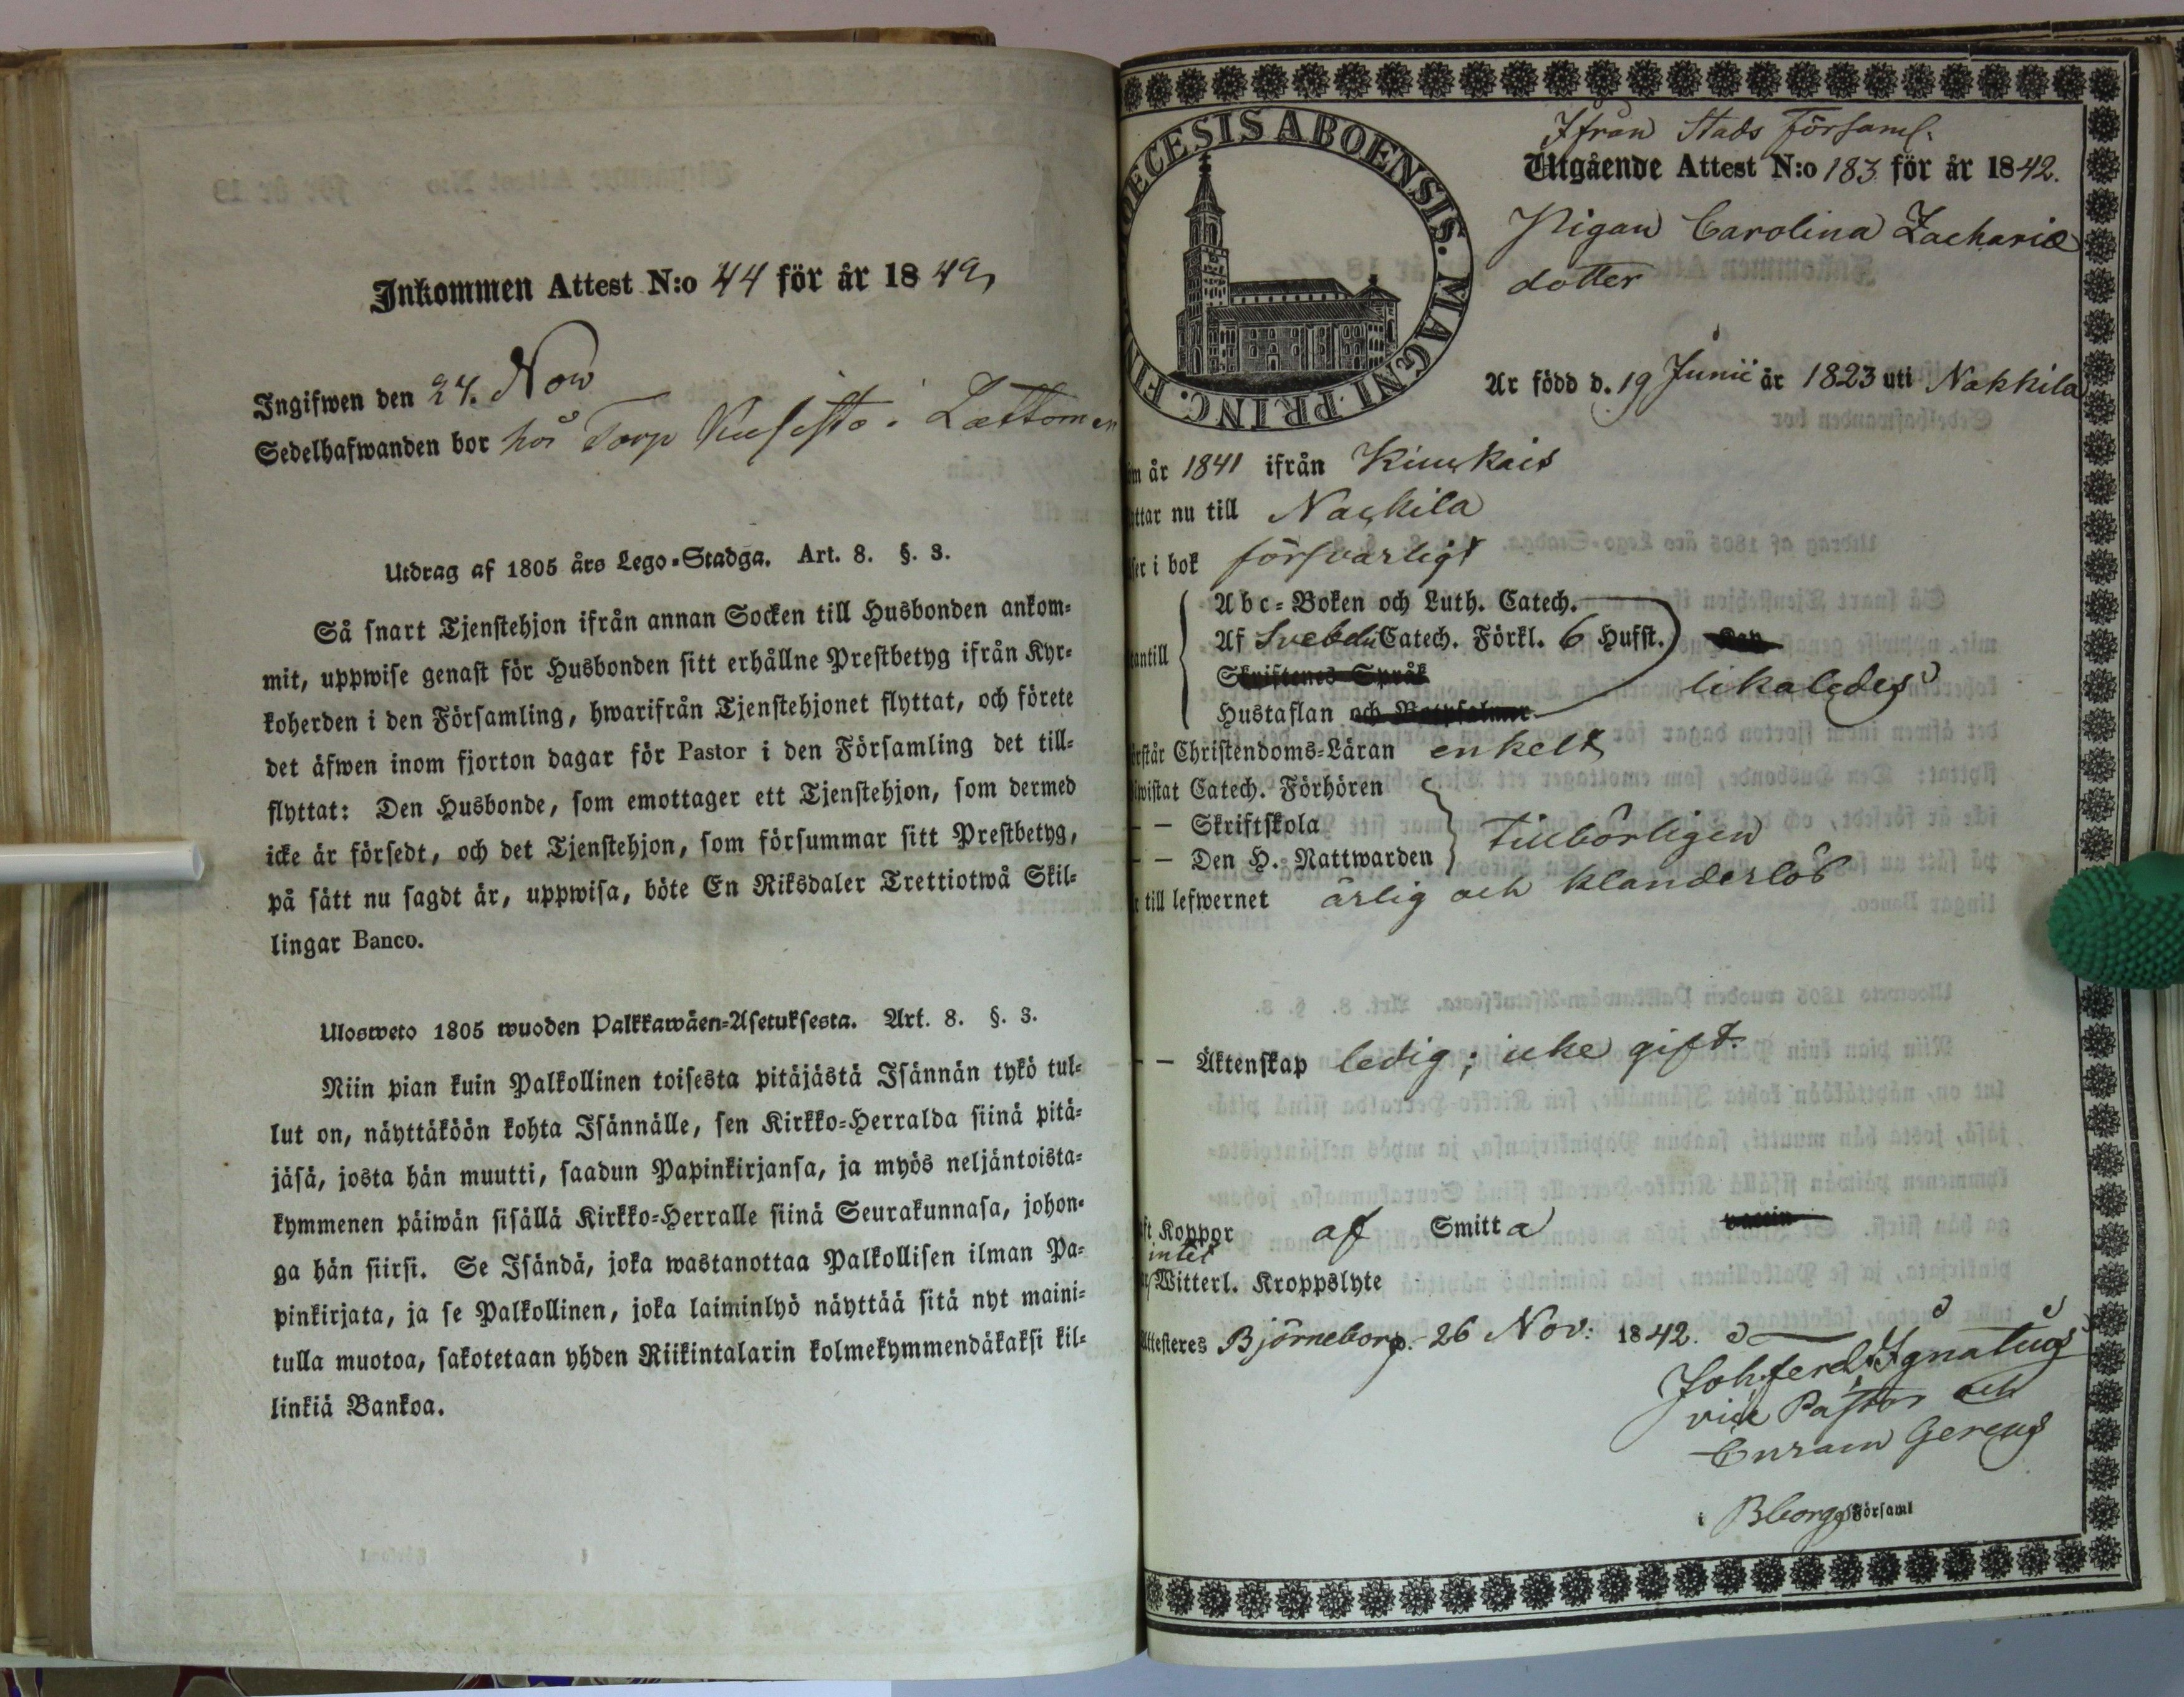 Inkommen Attest N:o 44 för år 1842
Ingifwen den 24. Nov
Sedelhafwanden bor hos Torp i Lattomeri
Utdrag af 1805 års Lego-Stadga. Art. 8. §. 3.
Så snart Tjenstehjon ifrån annan Socken till Husbonden ankom-
mit, uppwise genast för Husbonden sitt erhållne Prestbetyg ifrån Kyr-
koherden i den Församling, hwarifrån Tjenstehjonet flyttat, och förete
det äfwen inom fjorton dagar för Pastor i den Församling det till-
flyttat: Den Husbonde, som emottager ett Tjenstehjon, som dermed
icke är försedt, och det Tjenstehjon, som försummar sitt Prestbetyg,
på sätt nu sagdt är, uppwisa, böte En Riksdaler Trettiotwå Skil-
lingar Banco.
Ulosweto 1805 wuoden Palkkawäen-Asetuksesta. Art. 8. §. 3.
Niin pian kuin Palkollinen toisesta pitäjästä Isännän tykö tul-
lut on, näyttäköön kohta Isännälle, sen Kirkko-Herralda siinä pitä-
jäsä, josta hän muutti, saadun Papinkirjansa, ja myös neljäntoista-
kymmenen päiwän sisällä Kirkko-Herralle siinä Seurakunnasa, johon-
ga hän siirsi. Se Isändä, joka wastanottaa Palkollisen ilman Pa-
pinkirjata, ja se Palkollinen, joka laiminlyö näyttää sitä nyt maini-
tulla muotoa, sakotetaan yhden Riikintalarin kolmekymmendäkaksi kil-
linkiä Bankoa.
DECESIS ABOENSIS. MAGNI PRINC. FIN
Ifrån Stads Församl.
Utgående Attest N:o 183 för år 1842.
Pigan Carolina Zacharie
dotter
Är född d. 19 Junii år 1823 uti Nakkila
om år 1841 ifrån Kiukais
yttar nu till Nackila
äser i bok försvarligt
Abc-Boken och Luth. Catech.
Af Svebelii Catech. Förkl. 6 Hufst.
antill
Skriftenes Språk likaledes
Hustaflan och Botpsalmer
örstår Christendoms-Läran enkelt
wistat Catech. Förhören
- - Skriftskola tillbörligen
- - Den H. Nattwarden
r till lefwernet ärlig och klanderlös
- - Äktenskap ledig; icke gift.
ft Koppor af Smitta
intet
Witterl. Kroppslyte
Attesteres Björneborg. 26 Nov: 1842.
Joh. Ferd. Ignatius
vice Pastor och
Curam Gerens
i Bborgs Församl